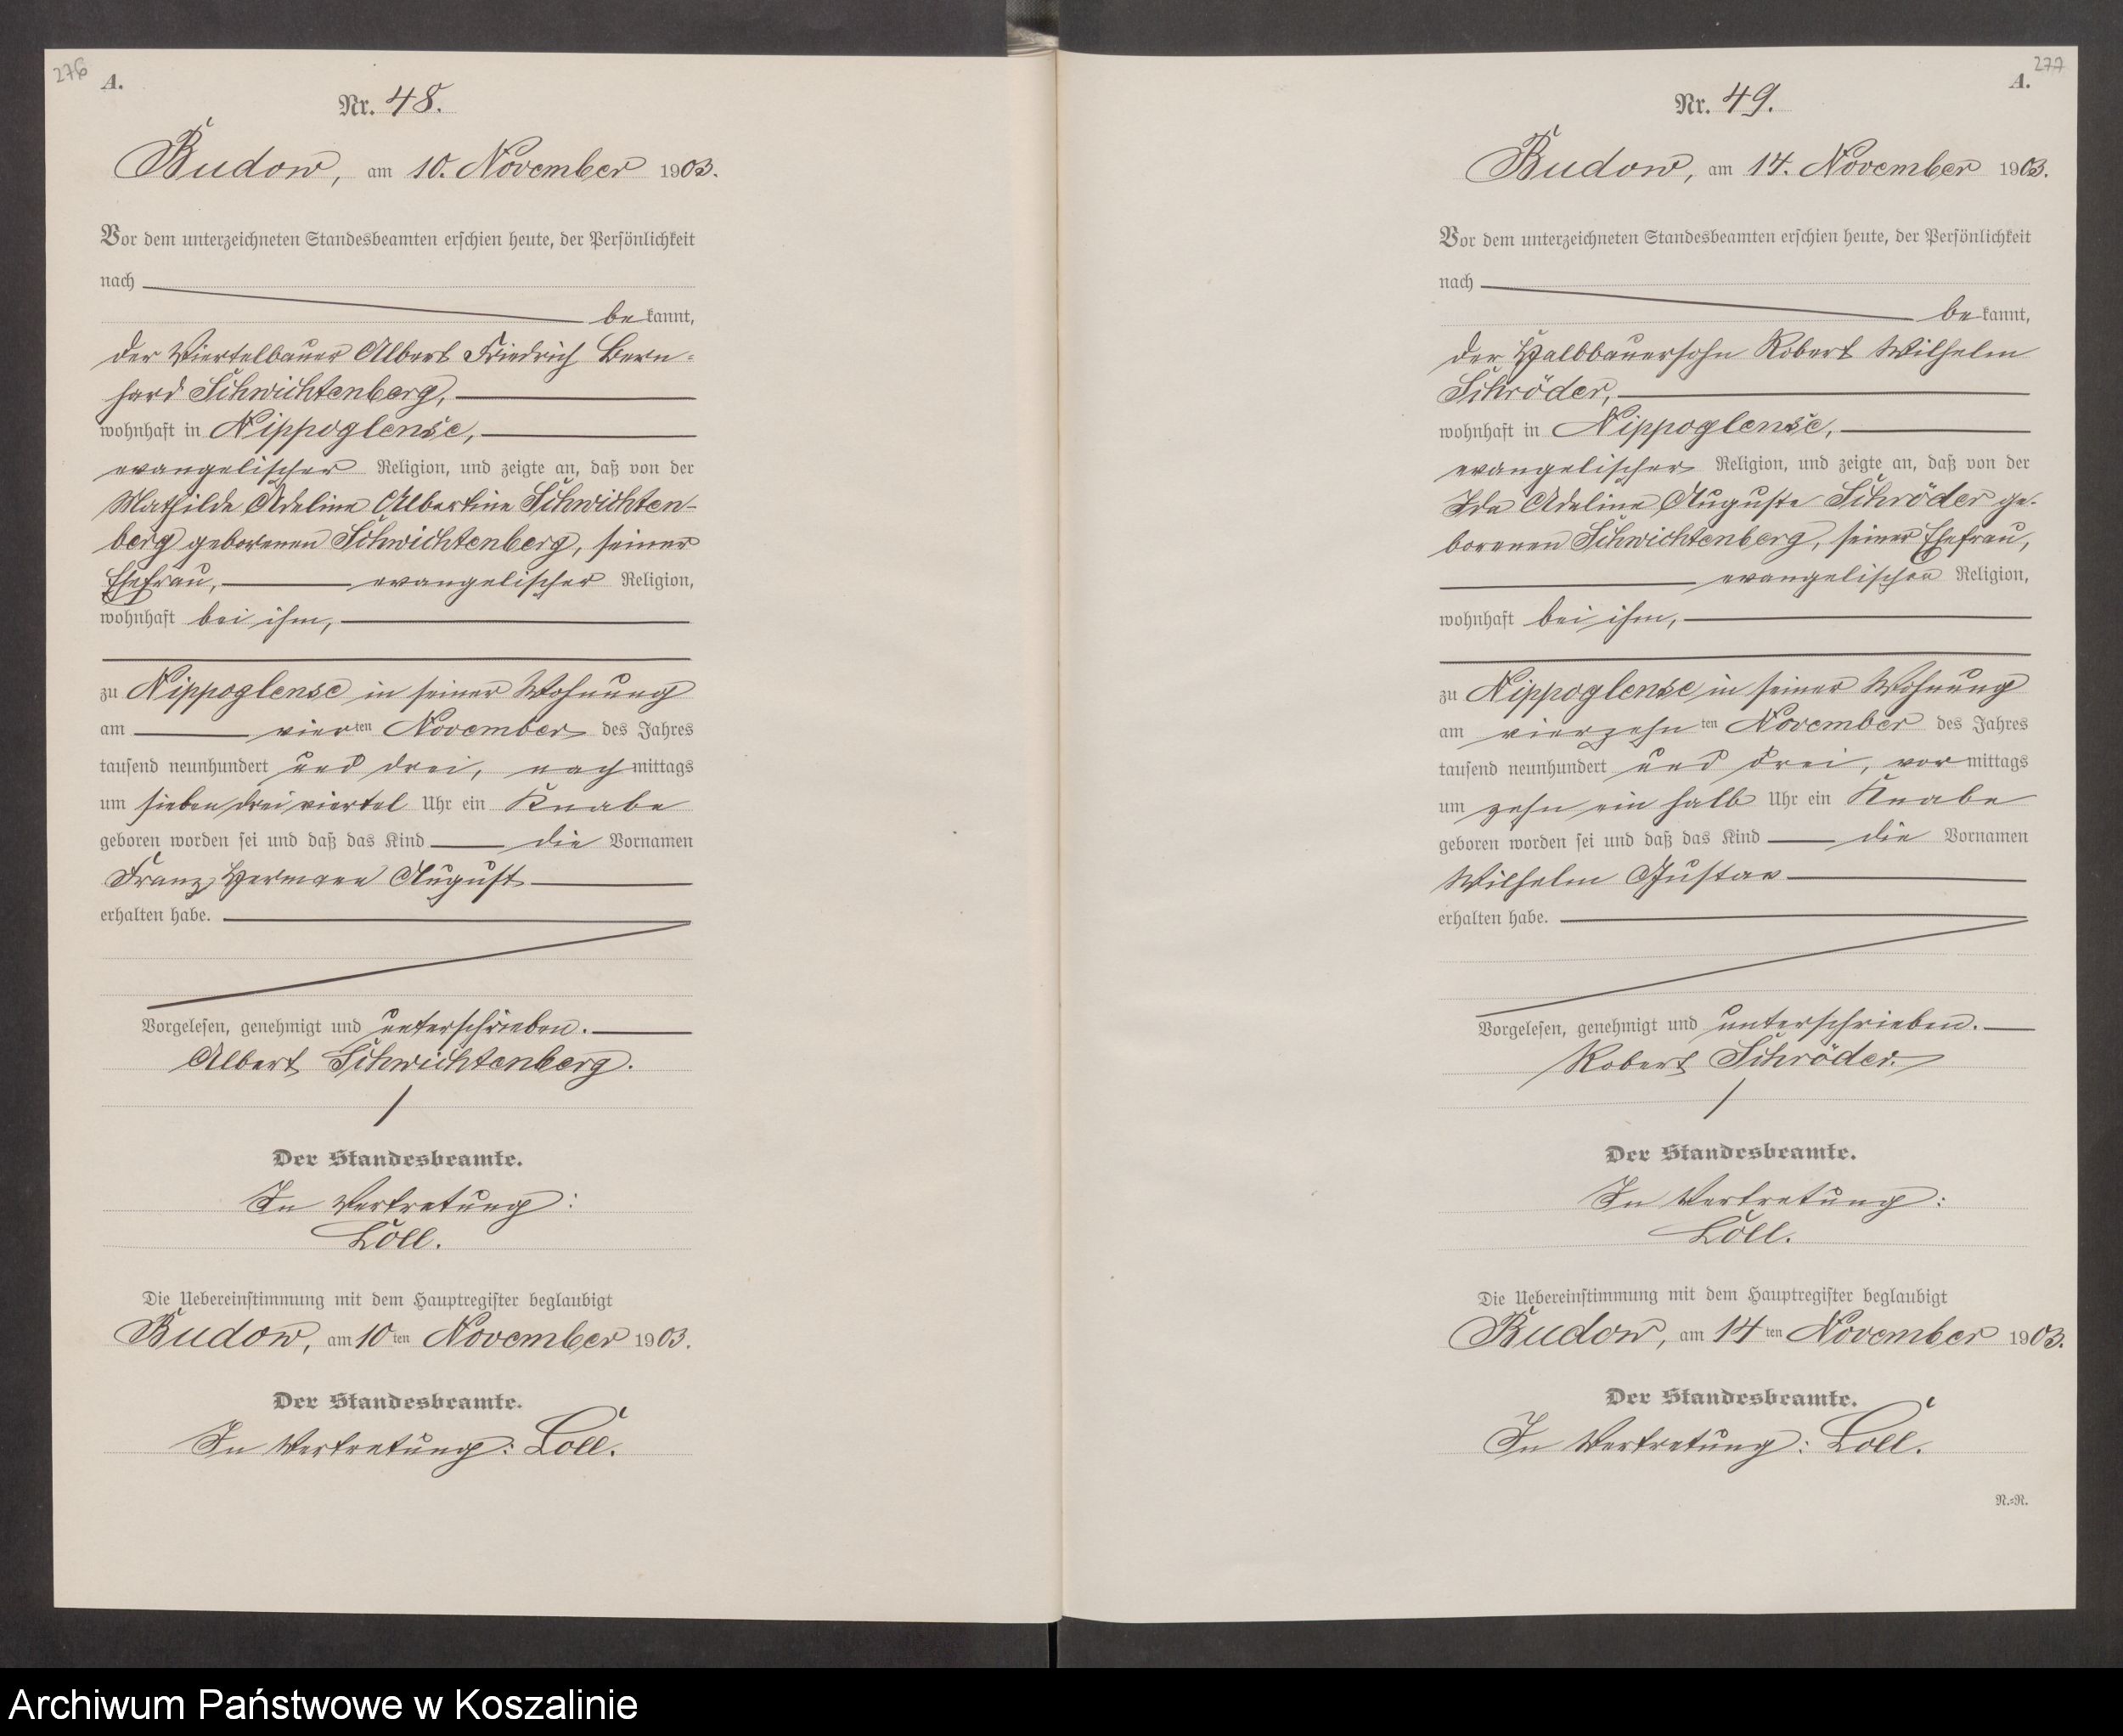 276
A.
Nr. 48.
Budow, am 10. November 1903.
Vor dem unterzeichneten Standesbeamten erschien heute, der Persönlichkeit
nach
bekannt,
der Viertelbauer Albert Friedrich Bern-
hard Schwichtenberg,
wohnhaft in Nippoglense,
evangelischer Religion, und zeigte an, daß von der
Mathilde Adeline Albertine Schwichten-
berg geborenen Schwichtenberg, seiner
Ehefrau, evangelischer Religion,
wohnhaft bei ihm,
zu Nippoglense in seiner Wohnung
am vierten November des Jahres
tausend neunhundert und drei, nachmittags
um sieben drei viertel Uhr ein Knabe
geboren worden sei und daß das Kind die Vornamen
Franz Hermann August
erhalten habe.
Vorgelesen, genehmigt und unterschrieben.
Albert Schwichtenberg.
Der Standesbeamte.
In Vertretung:
Loll.
Die Uebereinstimmung mit dem Hauptregister beglaubigt
Budow, am 10ten November 1903.
Der Standesbeamte.
In Vertretung: Loll.
277
A.
Nr. 49.
Budow, am 14. November 1903.
Vor dem unterzeichneten Standesbeamten erschien heute, der Persönlichkeit
nach
bekannt,
der Halbbauersohn Robert Wilhelm
Schröder,
wohnhaft in Nippoglense,
evangelischer Religion, und zeigte an, daß von der
Ida Adeline Auguste Schröder ge-
borenen Schwichtenberg, seiner Ehefrau,
evangelischen Religion,
wohnhaft bei ihm,
zu Nippoglense in seiner Wohnung
am vierzehnten November des Jahres
tausend neunhundert und drei, vormittags
um zehn ein halb Uhr ein Knabe
geboren worden sei und daß das Kind die Vornamen
Wilhelm Gustav
erhalten habe.
Vorgelesen, genehmigt und unterschrieben.
Robert Schröder.
Der Standesbeamte.
In Vertretung:
Loll.
Die Uebereinstimmung mit dem Hauptregister beglaubigt
Budow, am 14ten November 1903.
Der Standesbeamte.
In Vertretung: Loll.
N.=N.
Archiwum Państwowe w Koszalinie